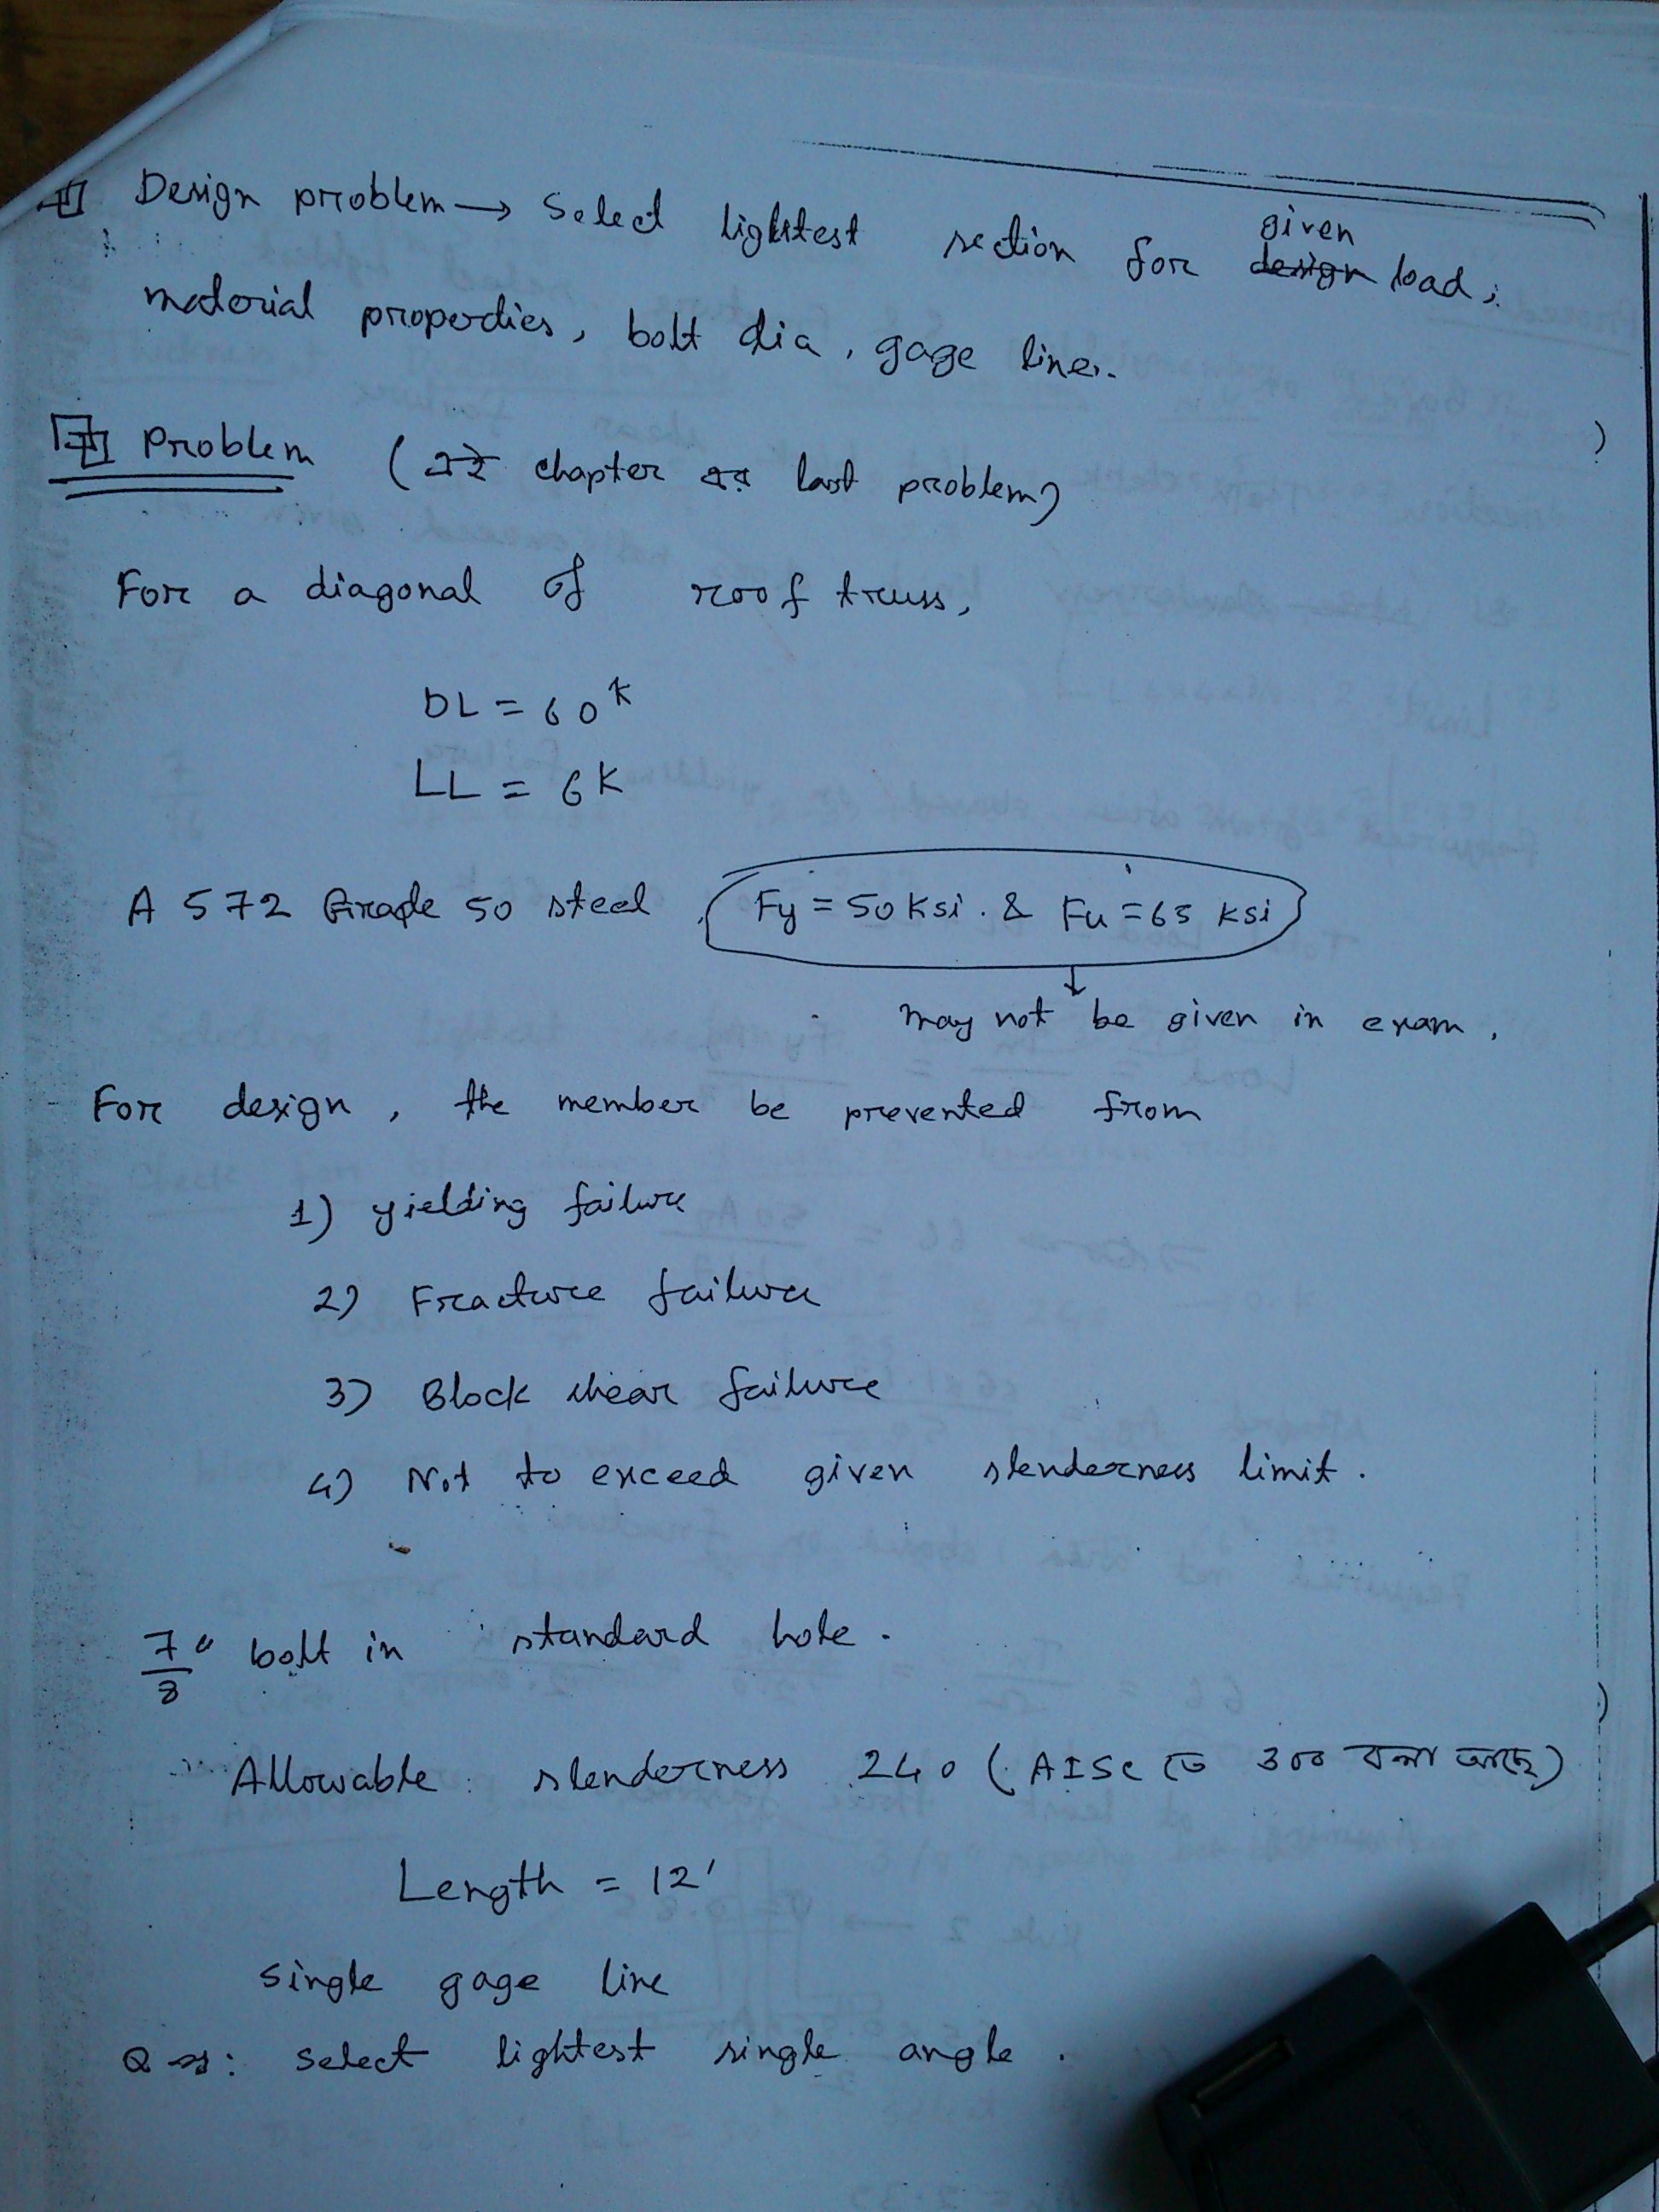 Design problem → Select lightest section for given design load,
material properties, bolt dia, gage line.
Problem (এই chapter এর last problem)
For a diagonal of roof truss,
DL = 60 k
LL = 6 k
A 572 Grade 50 steel, Fy = 50 ksi. & Fu = 65 ksi
may not be given in exam.
For design, the member be prevented from
1) yielding failure
2) Fracture failure
3) Block shear failure
4) Not to exceed given slenderness limit.
7/8" bolt in standard hole.
Allowable slenderness 240 (AISC তে 300 বলা আছে)
Length = 12'
single gage line
select lightest single angle.